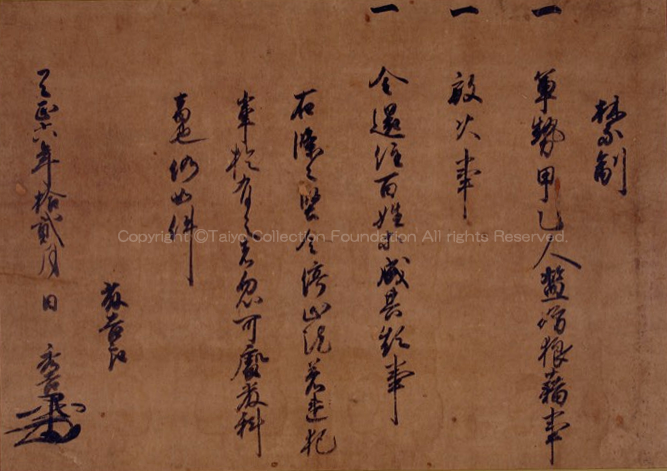 禁制
一 軍勢甲乙人濫妨狼藉事
一 放火事
一 令還住百姓等成其煩事
右條々堅令停止訖若違犯
輩於有之者忽可處嚴科
者也仍如件
天正六年拾貳月日
藤吉郎
秀吉
Copyright ©Taiyo Collection Foundation All rights Reserved.